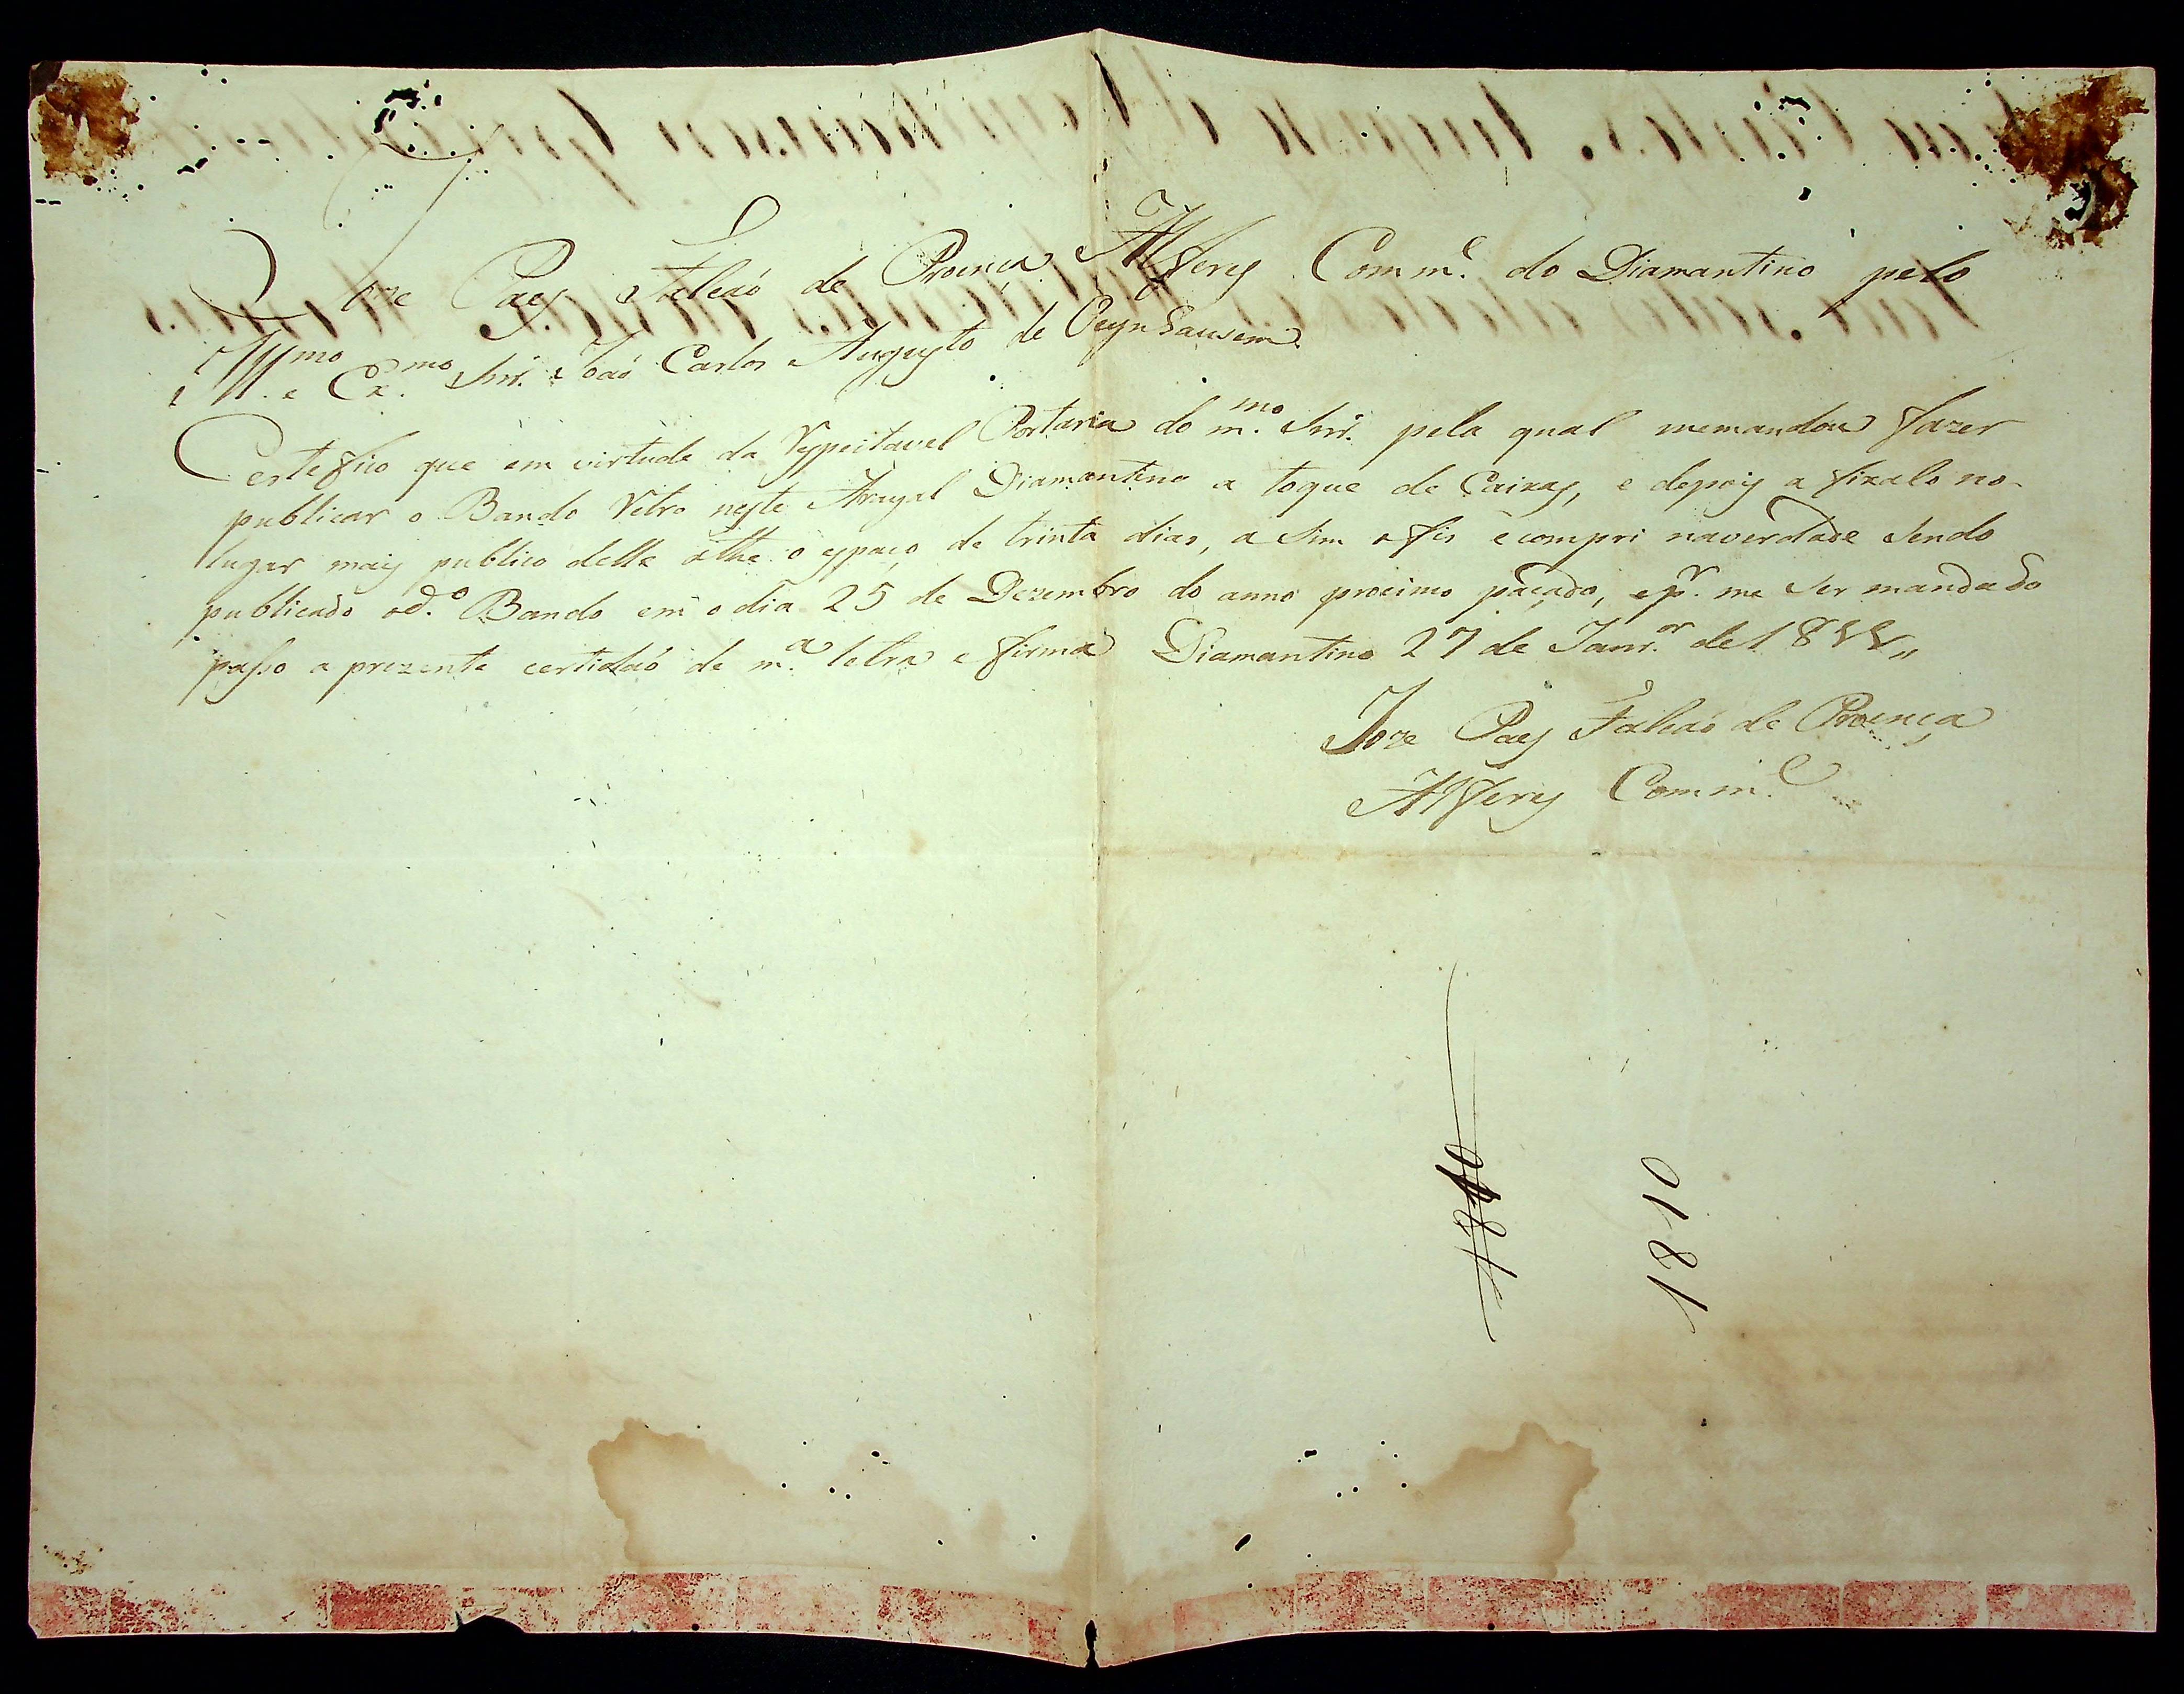 Joze Paes Falcaó de Proença Alferes Comm.e do Diamantino pelo
Ill.mo e Ex.mo Snr. Joaó Carlos Augusto de Oeynhausem.
Certefico que em virtude da Respeitavel Portaria do m.mo Snr. pela qual memandou fazer
publicar o Bando Retro neste Arayal Diamantino a toque de Caixas, e depois a fixalo no
lugar mais publico delle athe o espaço de trinta dias, a Sim o fis e compri naverdade Sendo
publicado od.o Bando em o dia 25 de Dezembro do anno procimo paçado, e p.r me Ser mandado
passo a prezente certidaó de m.a letra e firma Diamantino 27 de Janr.o de 1811,,
Joze Paes Falcaó de Proença
Alferes Comm.e
1810